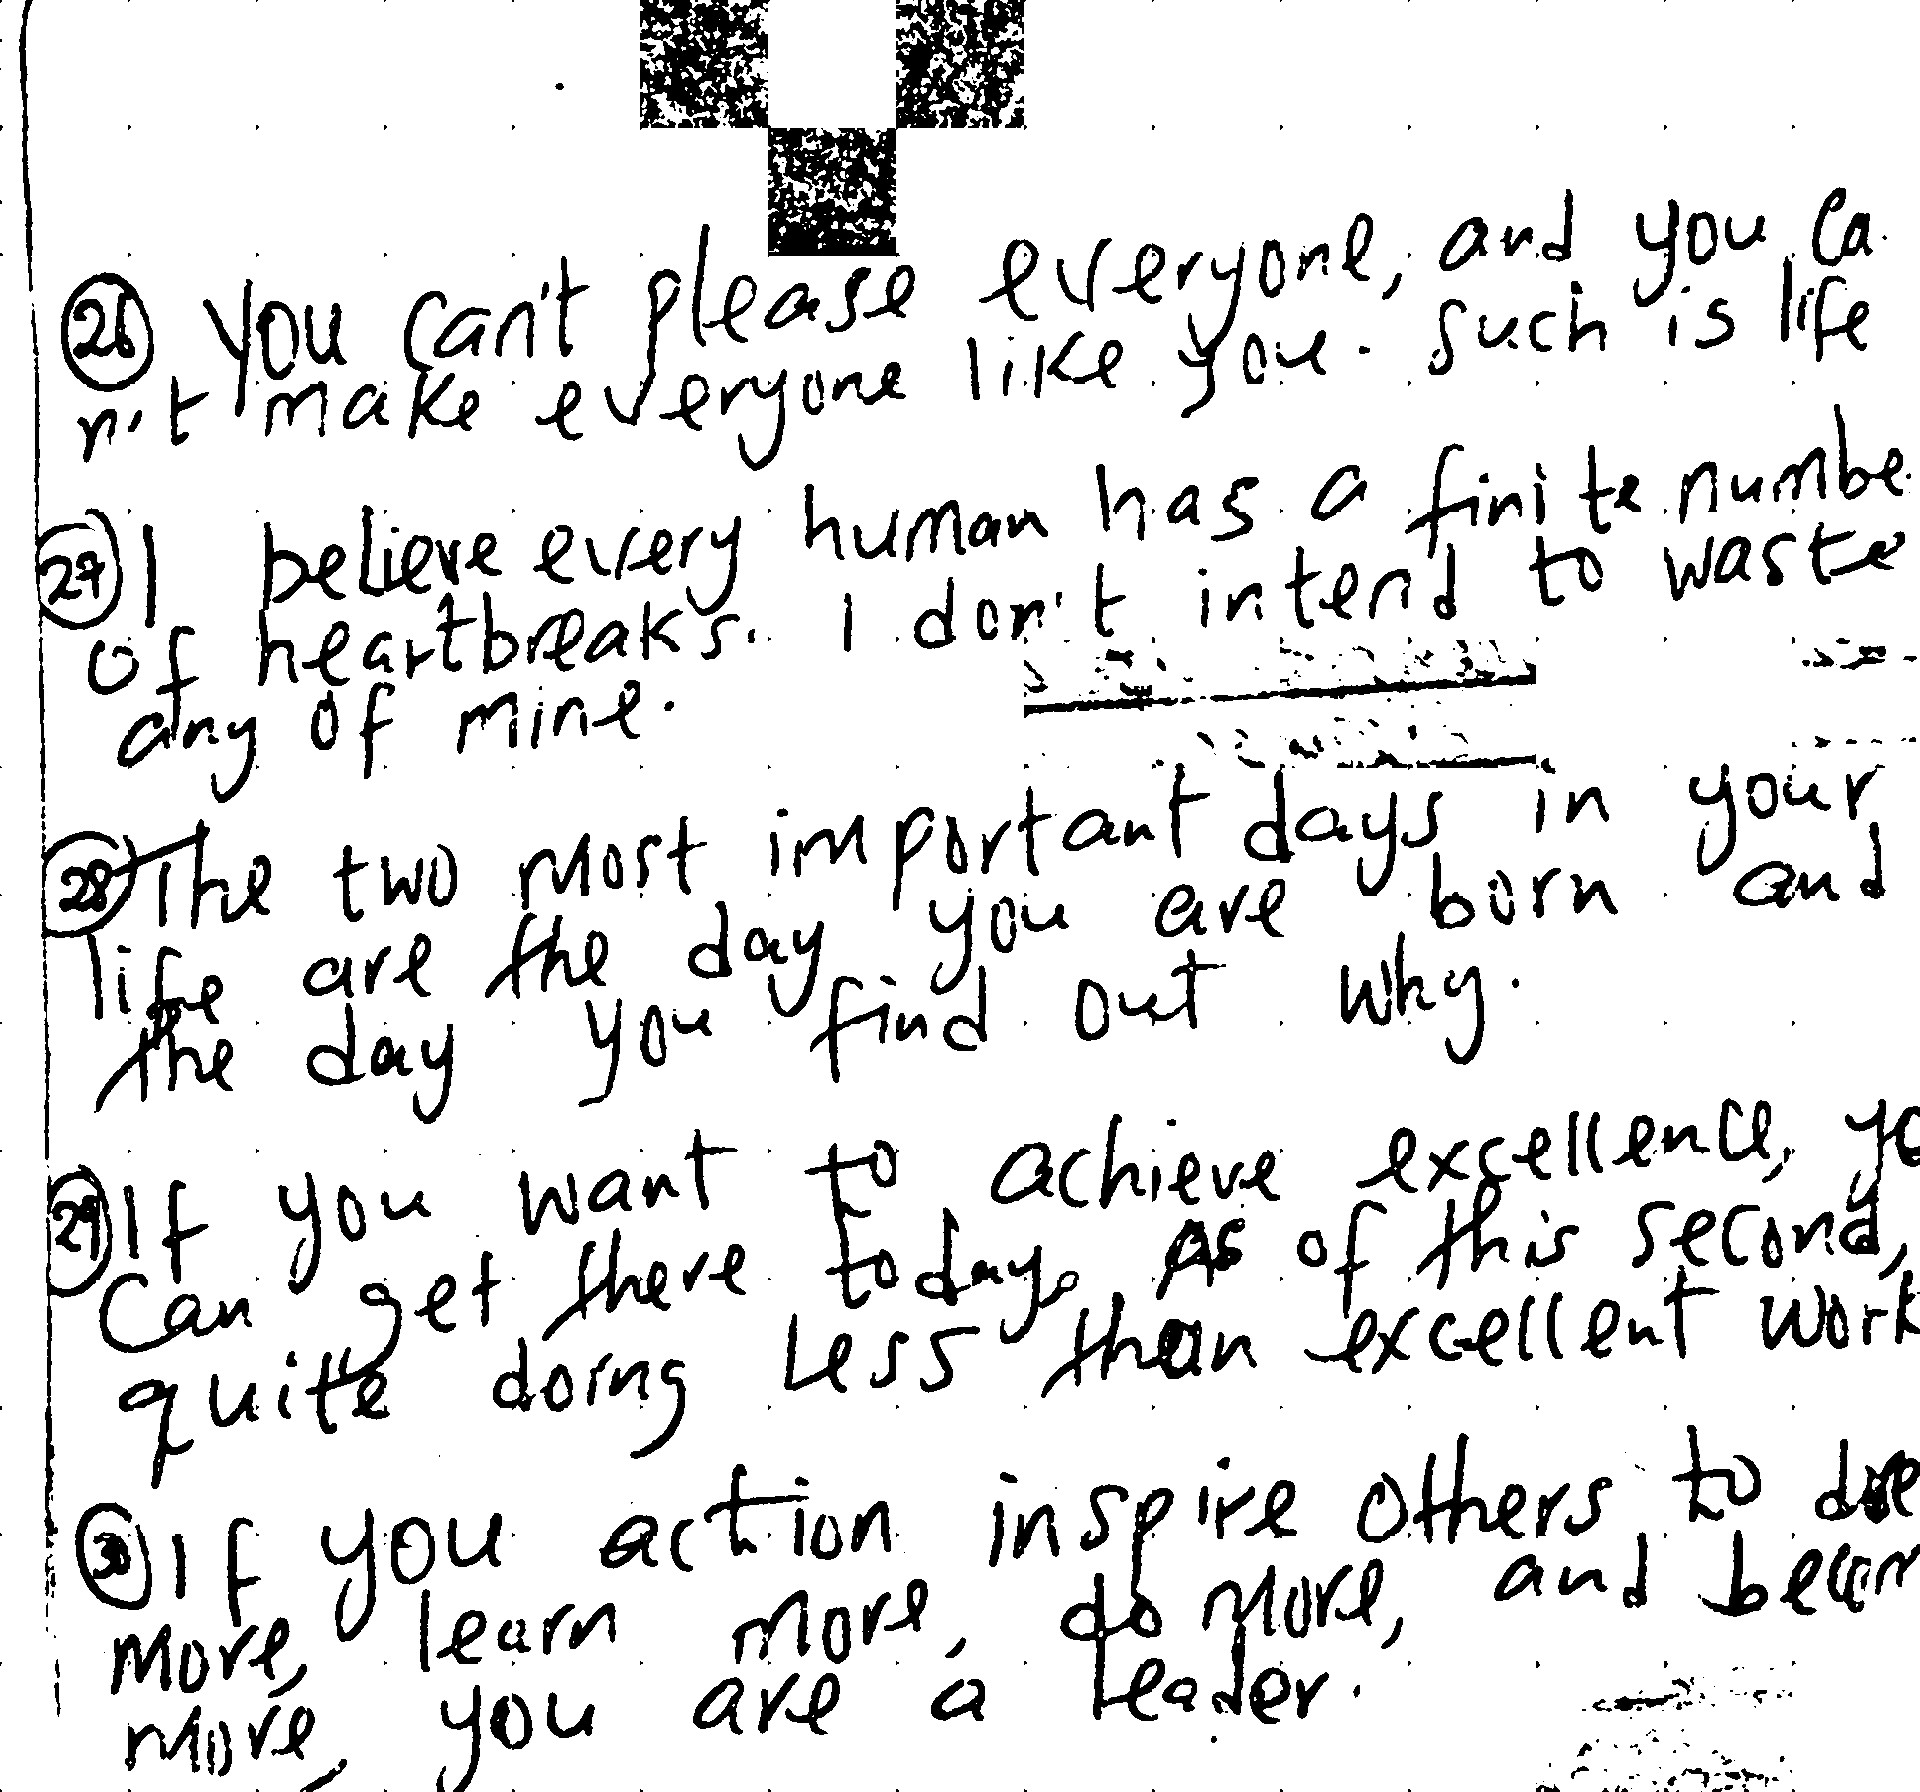 26 You can't please everyone, and you ca
n't make everyone like you. such is life
27 I believe every human has a finite numbe
of heartbreaks. I don't intend to waste
any of mine.
28 The two most important days in your
life are the day you are born and
the day you find out why.
29 If you want to achieve excellence, yo
can get there today. As of this second,
quite doing Less than excellent work
30 If you action inspire others to dre
more, learn more, do more, and becom
more, you are a Leader.